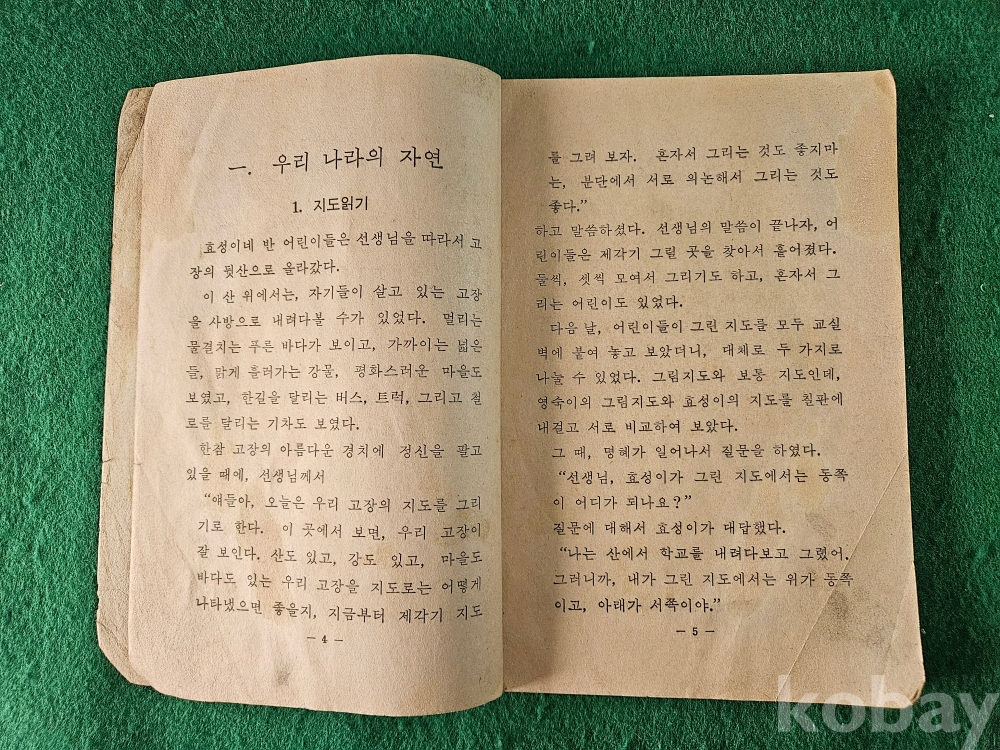 一. 우리 나라의 자연
1. 지도읽기
효성이네 반 어린이들은 선생님을 따라서 고
장의 뒷산으로 올라갔다.
이 산 위에서는, 자기들이 살고 있는 고장
을 사방으로 내려다볼 수가 있었다. 멀리는
물결치는 푸른 바다가 보이고, 가까이는 넓은
들, 맑게 흘러가는 강물, 평화스러운 마을도
보였고, 한길을 달리는 버스, 트럭, 그리고 철
로를 달리는 기차도 보였다.
한참 고장의 아름다운 경치에 정신을 팔고
있을 때에, 선생님께서
“얘들아, 오늘은 우리 고장의 지도를 그리
기로 한다. 이 곳에서 보면, 우리 고장이
잘 보인다. 산도 있고, 강도 있고, 마을도
바다도 있는 우리 고장을 지도로는 어떻게
나타냈으면 좋을지, 지금부터 제각기 지도
— 4 —
를 그려 보자. 혼자서 그리는 것도 좋지마
는, 분단에서 서로 의논해서 그리는 것도
좋다.”
하고 말씀하셨다. 선생님의 말씀이 끝나자, 어
린이들은 제각기 그릴 곳을 찾아서 흩어졌다.
둘씩, 셋씩 모여서 그리기도 하고, 혼자서 그
리는 어린이도 있었다.
다음 날, 어린이들이 그린 지도를 모두 교실
벽에 붙여 놓고 보았더니, 대체로 두 가지로
나눌 수 있었다. 그림지도와 보통 지도인데,
영숙이의 그림지도와 효성이의 지도를 칠판에
내걸고 서로 비교하여 보았다.
그 때, 명혜가 일어나서 질문을 하였다.
“선생님, 효성이가 그린 지도에서는 동쪽
이 어디가 되나요?”
질문에 대해서 효성이가 대답했다.
“나는 산에서 학교를 내려다보고 그렸어.
그러니까, 내가 그린 지도에서는 위가 동쪽
이고, 아래가 서쪽이야.”
— 5 —
kobay